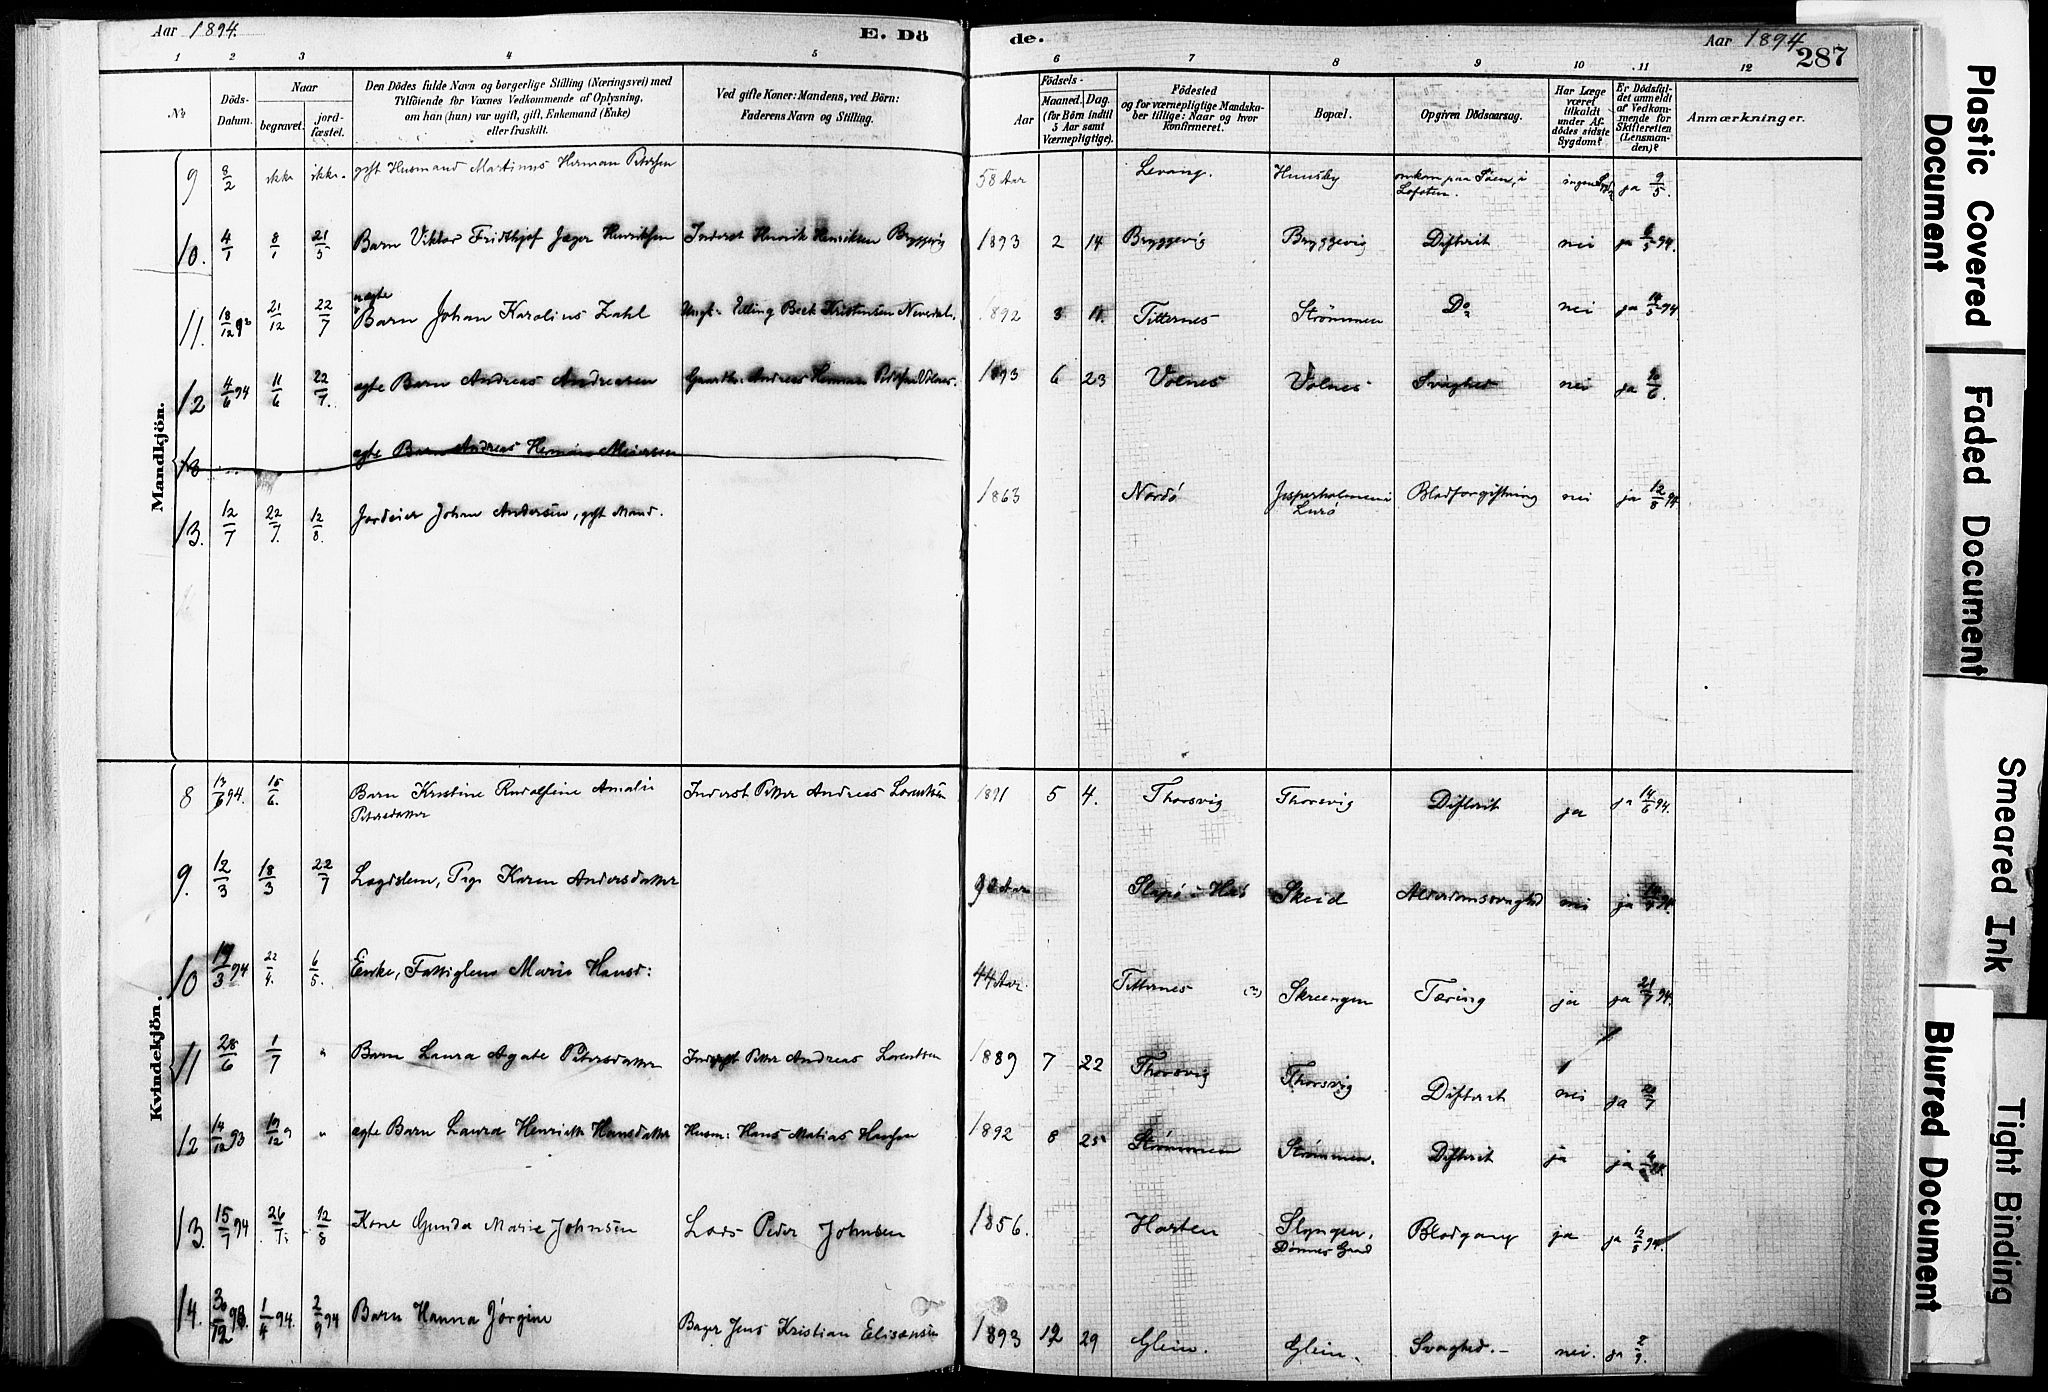 Aar 1894. E. Dö
de. Aar 1894 287
1 2 3 4 5 6 7 8 9 10 11 12
No
Döds-Datum.
Naar
begravet.
jord-fæstet.
Den Dödes fulde Navn og borgerlige Stilling (Næringsvei) med
Tilföiende for Voxnes Vedkommende af Oplysning,
om han (hun) var ugift, gift, Enkemand (Enke)
eller fraskilt.
Ved gifte Koner: Mandens, ved Börn:
Faderens Navn og Stilling.
Födsels-
Aar
Maaned. Dag.
(for Börn indtil
5 Aar samt
Værnepligtige).
Födested
og for værnepligtige Mandska-
ber tillige: Naar og hvor
Konfirmeret.
Bopæl.
Opgiven Dödsaarsag.
Har Læge
været
tilkaldt
under Af-
dödes sidste
Sygdom?
Er Dödsfal-
det anmeldt
af Vedkom-
mende for
Skifteretten
(Lensman-
den)?
Anmærkninger.
Mandkjön.
9 8/2 ikke ikke. gift Husmand Martinus Herman Petersen 58 Aar Levang. Huusby omkom paa Søen, i Lofoten. ingen ja 9/5.
10. 4/1 8/1 21/5 Barn Viktor Fridthjof Jæger Henriksen Inderst Henrik Henriksen Bryggevig 1893 2 14 Bryggevig Bryggevig Difterit nei ja 94.
11. 18/12 93 21/12 22/7 uægte Barn Johan Karolius Zahl Ungk. Elling Beck Kristensen Neverdal. 1892 3 11. Titternes Strømmen Do nei ja 94
12 4/6 94 11/6 22/7. ægte Barn Andreas Andreasen Gaardbr. Andreas Herman Petersen Volnes. 1893 6 23 Volnes Volnes Svaghed nei ja
13 ægte Barn Andreas Herman Meiersen
13. 12/7 22/7. 12/8. Jordeier Johan Andersen, gift Mand. 1863 Nordø Jesperholmen i Lurø Blodforgiftning nei ja 12/8 94.
Kvindekjön.
8 13/6 94. 15/6. Barn Kristine Rudolfine Amalie Petersdatter Inderst Petter Andreas Lorentsen 1891 5 4. Thorsvig Thorsvig Difterit ja ja 14/6 94.
9. 12/3 18/3 22/7 Lægdslem, Pige Karen Andersdatter 90 Aar Slapø i Herø Skeid Alderdomssvaghed nei ja 94.
10 19/3 94 22/4. 6/5. Enke, Fattiglem Marie Hansd: 44 Aar Titternes (?) Skreengen Tæring ja ja 21/7 94.
11 28/6 1/7 " Barn Laura Agate Petersdatter Inderst Petter Andreas Lorentsen 1889 7 22 Thorsvig Thorsvig Difterit nei ja
12 14/12 93 19/12 " ægte Barn Laura Henriette Hansdatter Husm: Hans Matias Hansen 1892 8 25 Strømmen Strømmen. Difterit ja ja
13. 15/7 94 26/7. 12/8 Kone Gunda Marie Johnsen Lars Peder Johnsen 1856. Harten Slyngen, Dønnes Gaard Blodgang ja ja 12/8 94.
14. 30/12 93. 1/4 94. 2/9 94 Barn Hanna Jørgine Bager Jens Kristian Elisæusen 1893 12 29 Glein. Glein. Svaghed. nei. ja 2/9.
Plastic Covered Document
Faded Document
Smeared Ink
Blurred Document
Tight Binding